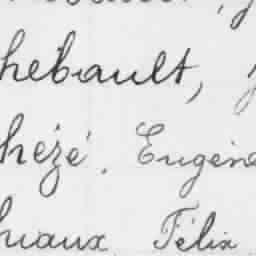 hébault,
hézé. Eugène
uaux Félix